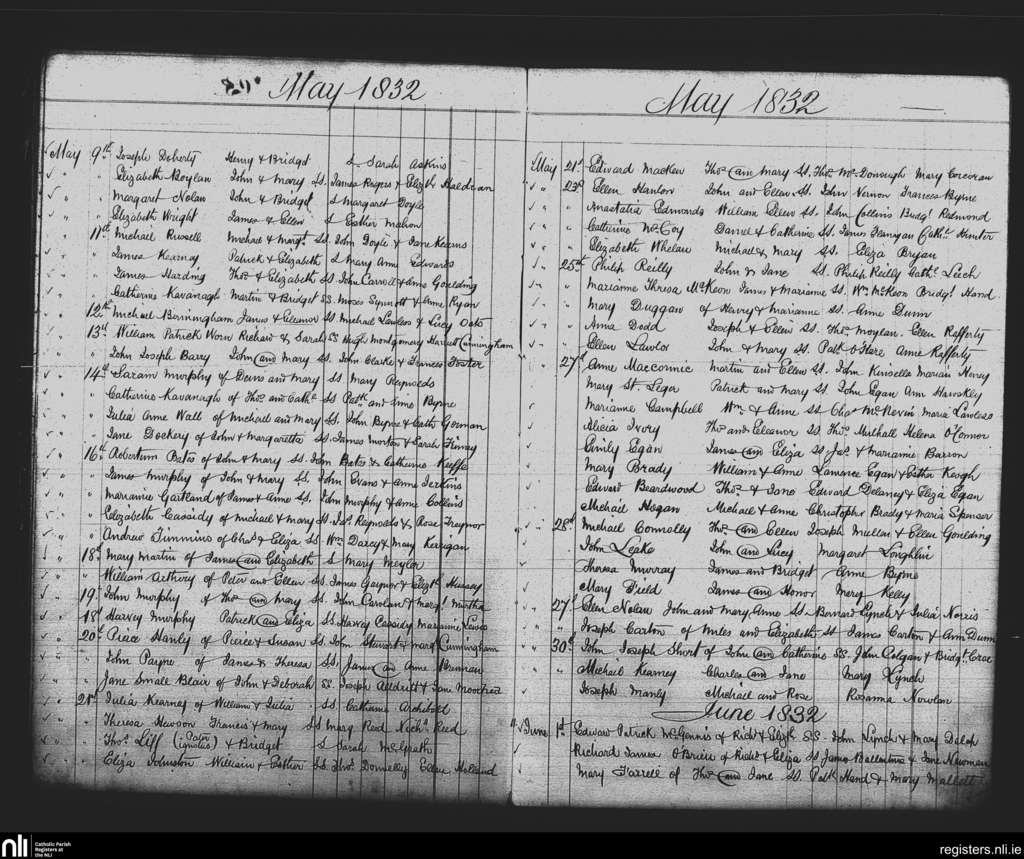 89. May 1832
May 9th Joseph Doherty Henry & Bridget S Sarah Askins
" Elizabeth Boylan John & Mary Ss. James Rogers & Elizth Haldean
" Margaret Nolan John & Bridget S Margaret Doyle
" Elizabeth Wright James & Ellen S Esther Mahon
" 11th Michael Russell Michael & Margt. Ss John Doyle & Jane Kearns
" James Kearney Patrick & Elizabeth S Mary Anne Edwards
" James Harding Thos & Elizabeth Ss John Carroll & Anne Goulding
" Catherine Kavanagh Martin & Bridget Ss. Moses Synnott & Anne Ryan
" 12th Michael Bermingham James & Eleanor Ss Michael Lawless & Lucy Oats
" 13th William Patrick Worn Richard & Sarah Ss Hugh Montgomery Harriett Cunningham
" John Joseph Barry John and Mary Ss. John Clarke & Frances Foster
" 14th Saram Murphy of Denis and Mary Ss Mary Reynolds
" Catherine Kavanagh of Thos and Cathe Ss Patk and Anne Byrne
" Julia Anne Wall of Michael and Mary Ss. John Byrne & Cath Gorman
" Jane Dockery of John & Margaretta Ss James Morton & Sarah Finay
" 16th Robertum Bates of John & Mary Ss. John Bates & Catherine Keeffe
" James Murphy of John & Mary Ss. John Evans & Anne Jerkins
" Marianne Gartland of James & Anne Ss. John Murphy & Anne Collins
" Elizabeth Cassidy of Michael & Mary Ss Jas. Reynolds & Rose Treynor
" Andrew Timmins of Chas & Eliza Ss Wm Darcy & Mary Kerrigan
" 18th Mary Martin of James and Elizabeth S Mary Meyler
" William Arthury of Peter and Ellen Ss. James Gaynor & Elizth Hussey
" 19th John Murphy of Thos and Mary Ss. John Carolan & Margt Murtha
" 18th Harvey Murphy Patrick and Eliza Ss Harvey Cassidy Marianne Lewis
" 20th Pierce Hanly of Pierce & Susan Ss John Stewart & Margt Cunningham
" John Payne of James & Theresa Ss. James and Anne Brennan
" Jane Small Blair of John & Deborah Ss. Joseph Alldritt & Jane Moorhead
" 21st Julia Kearney of William & Julia Ss. Catherine Archibold
" Theresa Hewson Francis & Mary Ss Mary Reid Nichs Reid
" Thos Liff (Peter Ignatius) & Bridget S Sarah McGrath
" Eliza Johnston William & Esther Ss. Thos Donnelly Ellen Holland
May 1832
May 21st Edward Macken Thos and Mary Ss. Thos McDonnugh Mary Corcoran
" 23rd Ellen Hanlon John and Ellen Ss. John Vernon Frances Byrne
" Anastatia Edwards William Ellen Ss. John Collins Bridgt Redmond
" Catherine McCoy Daniel & Catherine Ss. James Flanagan Cathe Hunter
" Elizabeth Whelan Michael & Mary Ss. Eliza Bryan
" 25th Philip Reilly John & Jane Ss Philip Reilly Cathe Leech
" Marianne Theresa McKeon James & Marianne Ss. Wm McKeon Bridgt Hand
" Mary Duggan of Harvey & Marianne Ss. Anne Dunn
" Anna Dodd Joseph & Ellen Ss. Thos Moylan Ellen Rafferty
" Ellen Lawlor John & Mary Ss. Patk O'Hare Anne Rafferty
" 27th Anne Maccormic Martin and Ellen Ss. John Kinsella Marian Nancy
Mary St Leger Patrick and Mary Ss. John Egan Ann Hawskly
Marianne Campbell Wm & Anne Ss Chas McNevin Maria Lawless
Alicia Ivory Thos and Eleanor Ss. Thos. Mulhall Helena O'Connor
Emily Egan James and Eliza Ss Jas. & Marianne Barron
Mary Brady William & Anne Lawrence Egan & Esther Keogh
Edward Beardwood Thos. & Jane Edward Delaney & Eliza Egan
Michael Hogan Michael & Anne Christopher Brady & Maria Spenser
" 28th Michael Connolly Thos. and Ellen Joseph Mullen & Ellen Goulding
John Leake John and Lucy Margaret Loughlin
Theresa Murray James and Bridget Anne Byrne
Mary Field James and Honor Mary Kelly
" 27th Ellen Nolan John and Mary Anne Ss Bernard Lynch & Julia Norris
" Joseph Carton of Miles and Elizabeth Ss James Carton & Ann Dunn
" 30th John Joseph Short of John and Catherine Ss. John Colgan & Bridgt. Croe
" Michael Kearney Charles and Jane Mary Lynch
" Joseph Manly Michael and Rose Rosanna Nowlan
June 1832
June 1st Edward Patrick McGennis of Richd & Elizth Ss. John Lynch & Mary Daloh
Richard James O'Brien of Richd & Eliza Ss James Ballantine & Jane Newman
Mary Farrell of Thos and Jane Ss. Patk Hand & Mary Mallett
nli Catholic Parish Registers at the NLI
registers.nli.ie